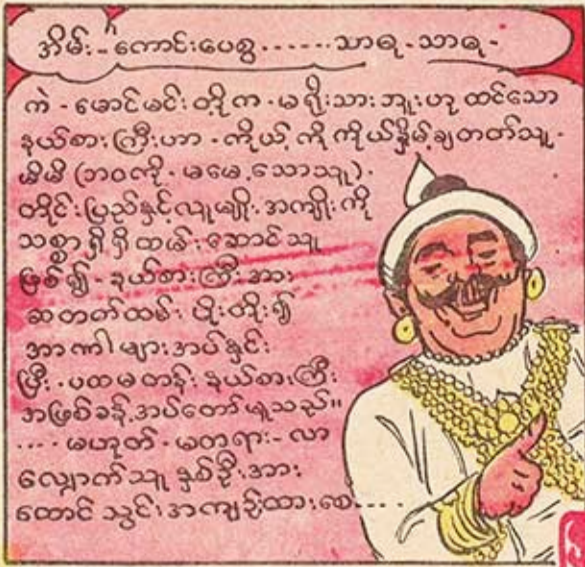 အိမ်း - ကောင်းပေစွ ...... သာဓု - သာဓု -
ကဲ - မောင်မင်းတို့က - မရိုးသားဘူးဟု ထင်သော
နယ်စားကြီးဟာ - ကိုယ့်ကိုကိုယ်နှိမ့်ချတတ်သူ -
မိမိ (ဘဝကို - မမေ့သောသူ) -
တိုင်းပြည်နှင့်လူမျိုးအကျိုးကို
သစ္စာရှိရှိထမ်းဆောင်သူ
ဖြစ်၍ - နယ်စားကြီးအား
ဆတက်ထမ်းပိုးတိုး၍
အာဏာများအပ်နှင်း
ပြီး - ပထမတန်းနယ်စားကြီး
အဖြစ်ခန့်အပ်တော်မူသည်။
.... မဟုတ် - မတရား - လာ
လျှောက်သူ နှစ်ဦးအား
ထောင်သွင်းအကျဉ်းထားစေ....